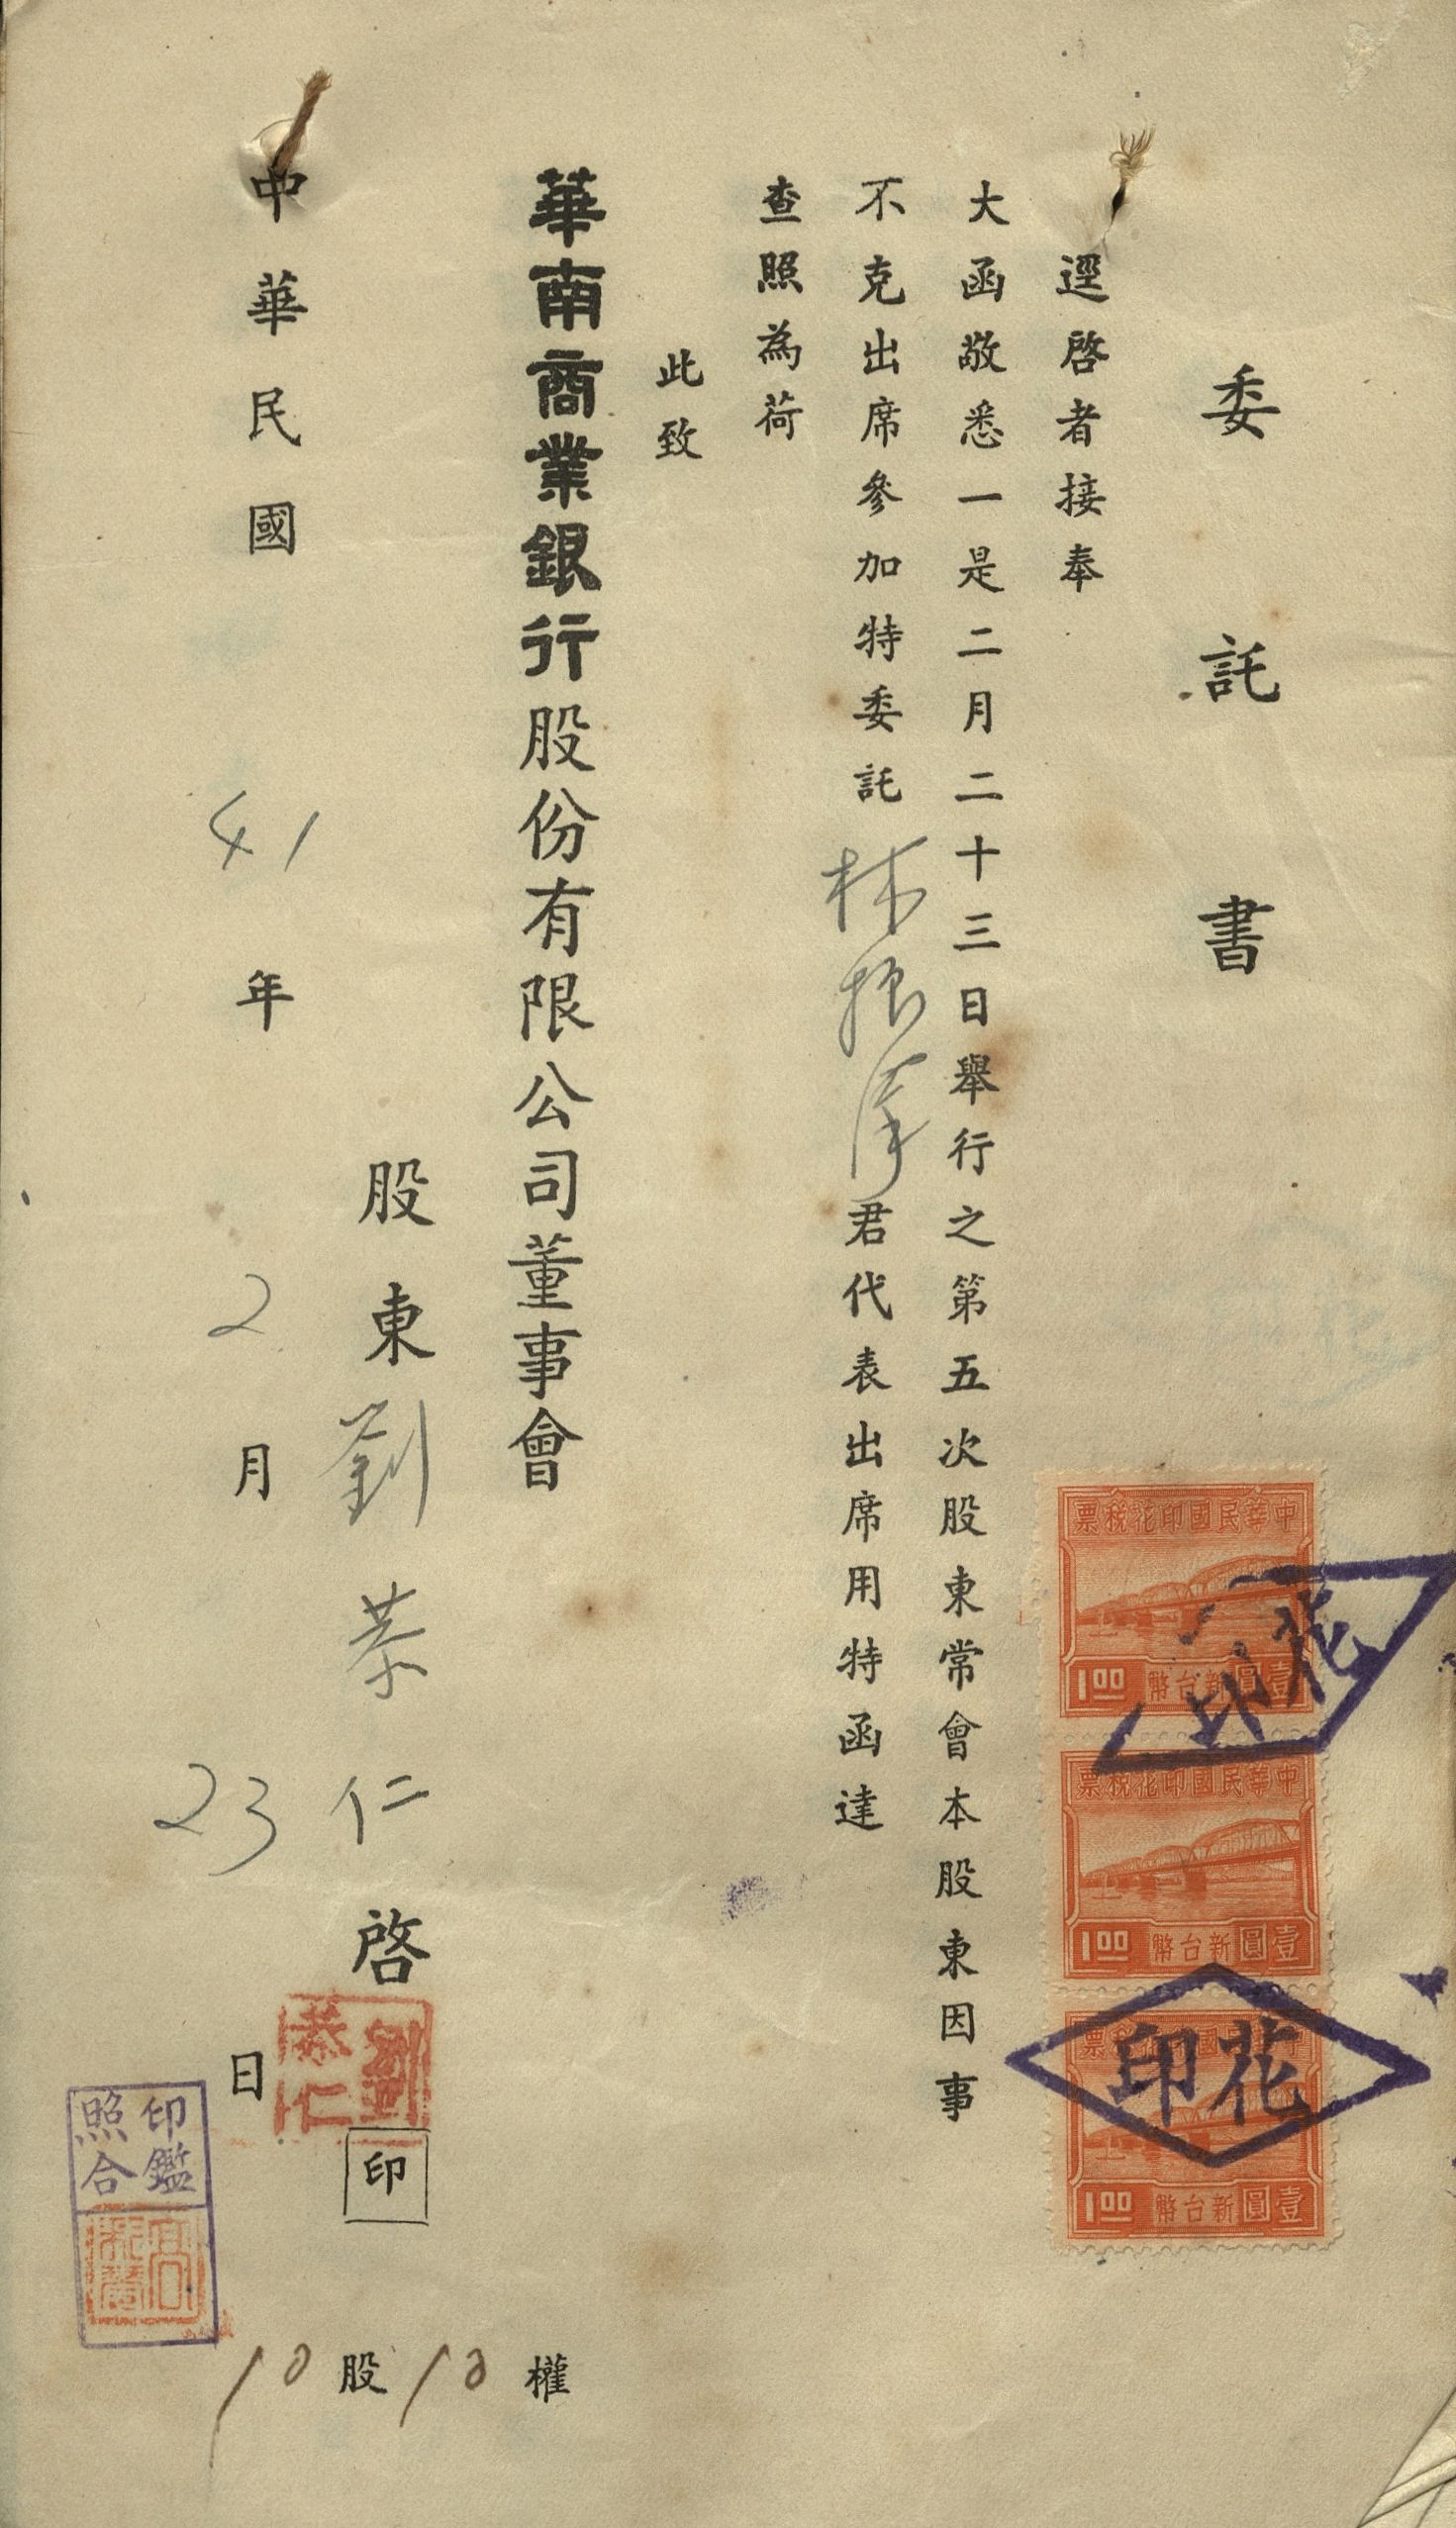 委託書
逕啓者接奉
大函敬悉一是二月二十三日舉行之第五次股東常會本股東因事
不克出席參加特委託林振 君代表出席用特函達
查照為荷
此致
華南商業銀行股份有限公司董事會
股東劉恭仁啓
劉恭仁
印
中華民國41年2月23日
10股10權
印鑑
照合
中華民國印花稅票
壹圓新台幣
1.00
花印
中華民國印花稅票
壹圓新台幣
1.00
中華民國印花稅票
壹圓新台幣
1.00
花印